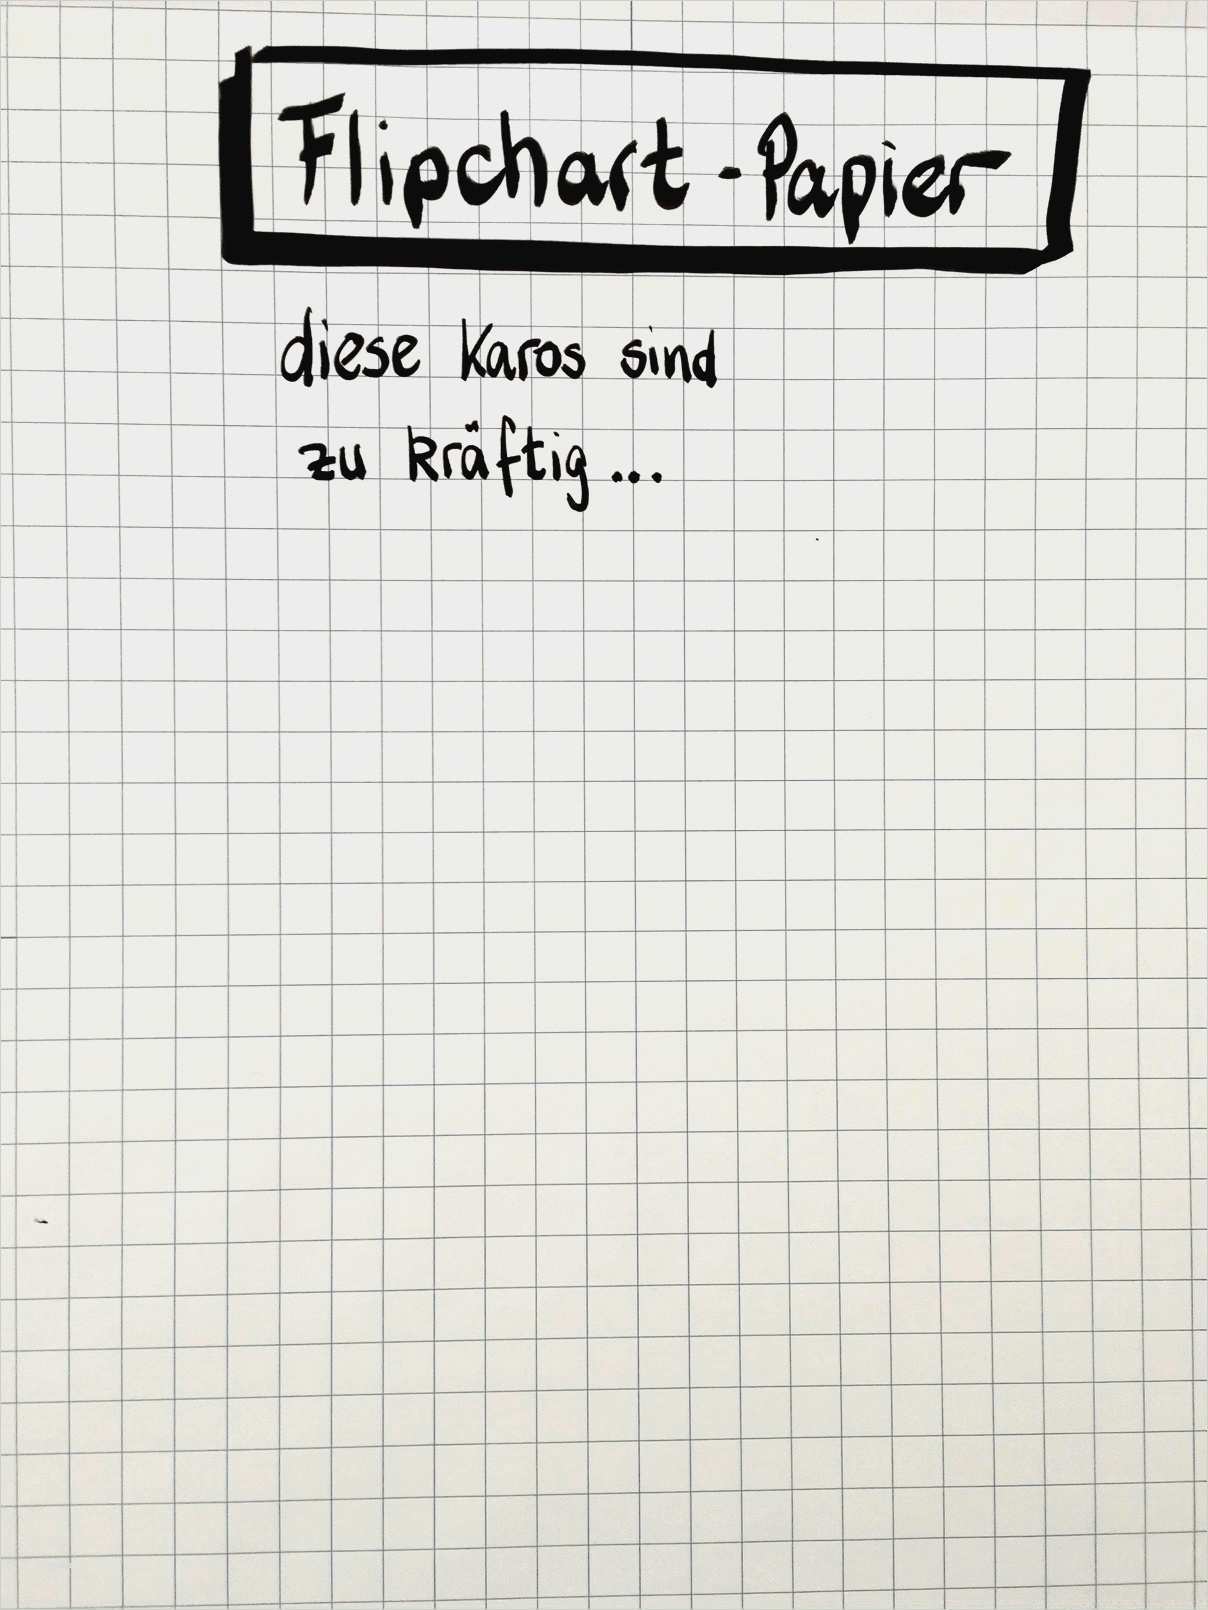 Flipchart-Papier
diese Karos sind
zu kräftig...